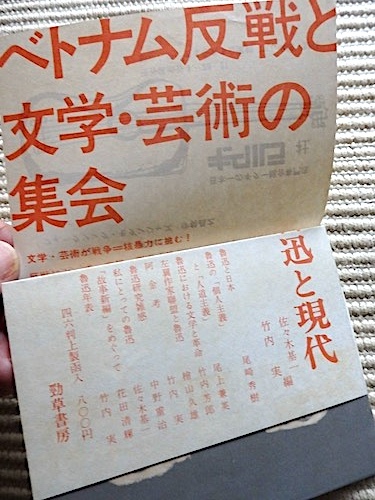 ベトナム反戦と
文学・芸術の
集会
文学・芸術が戦争=狂暴力に挑む!
迅と現代
佐々木基一
竹内 実 編
魯迅と日本 尾崎秀樹
魯迅の「個人主義」
と「人道主義」 尾上兼英
魯迅における文学と革命 竹内芳郎
左翼作家連盟と魯迅 檜山久雄
阿金考 竹内 実
魯迅研究雑感 中野重治
私にとっての魯迅 佐々木基一
「故事新編」をめぐって 花田清輝
魯迅年表 竹内 実
四六判上製函入 八〇〇円
勁草書房